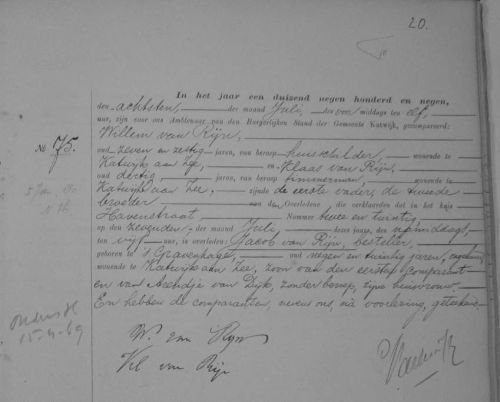 20.
In het jaar een duizend negen honderd en negen,
den achtsten, der maand Juli, des voor middags ten elf,
uur, zijn voor ons Ambtenaar van den Burgerlijken Stand der Gemeente Katwijk, gecompareerd:
Willem van Rijn,
No 75.
oud zeven en zestig jaren, van beroep huisschilder, wonende te
Katwijk aan Zee, en Klaas van Rijn,
oud dertig jaren, van beroep timmerman wonende te
Katwijk aan Zee, zijnde de eerste vader, de tweede
broeder van den Overledene die verklaarden dat in het huis
Havenstraat Nummer twee en twintig,
op den zevenden der maand Juli dezes jaars, des namiddags
ten vijf ure, is overleden: Jacob van Rijn, besteller,
geboren te 's Gravenhage, oud negen en twintig jaren, ongehuwd,
wonende te Katwijk aan Zee, zoon van den eersten comparant
en van Aechtje van Dijk, zonder beroep, zijne huisvrouw.
En hebben de comparanten, nevens ons, na voorlezing, geteekend.
15-4-69
W. van Rijn
van Rijn